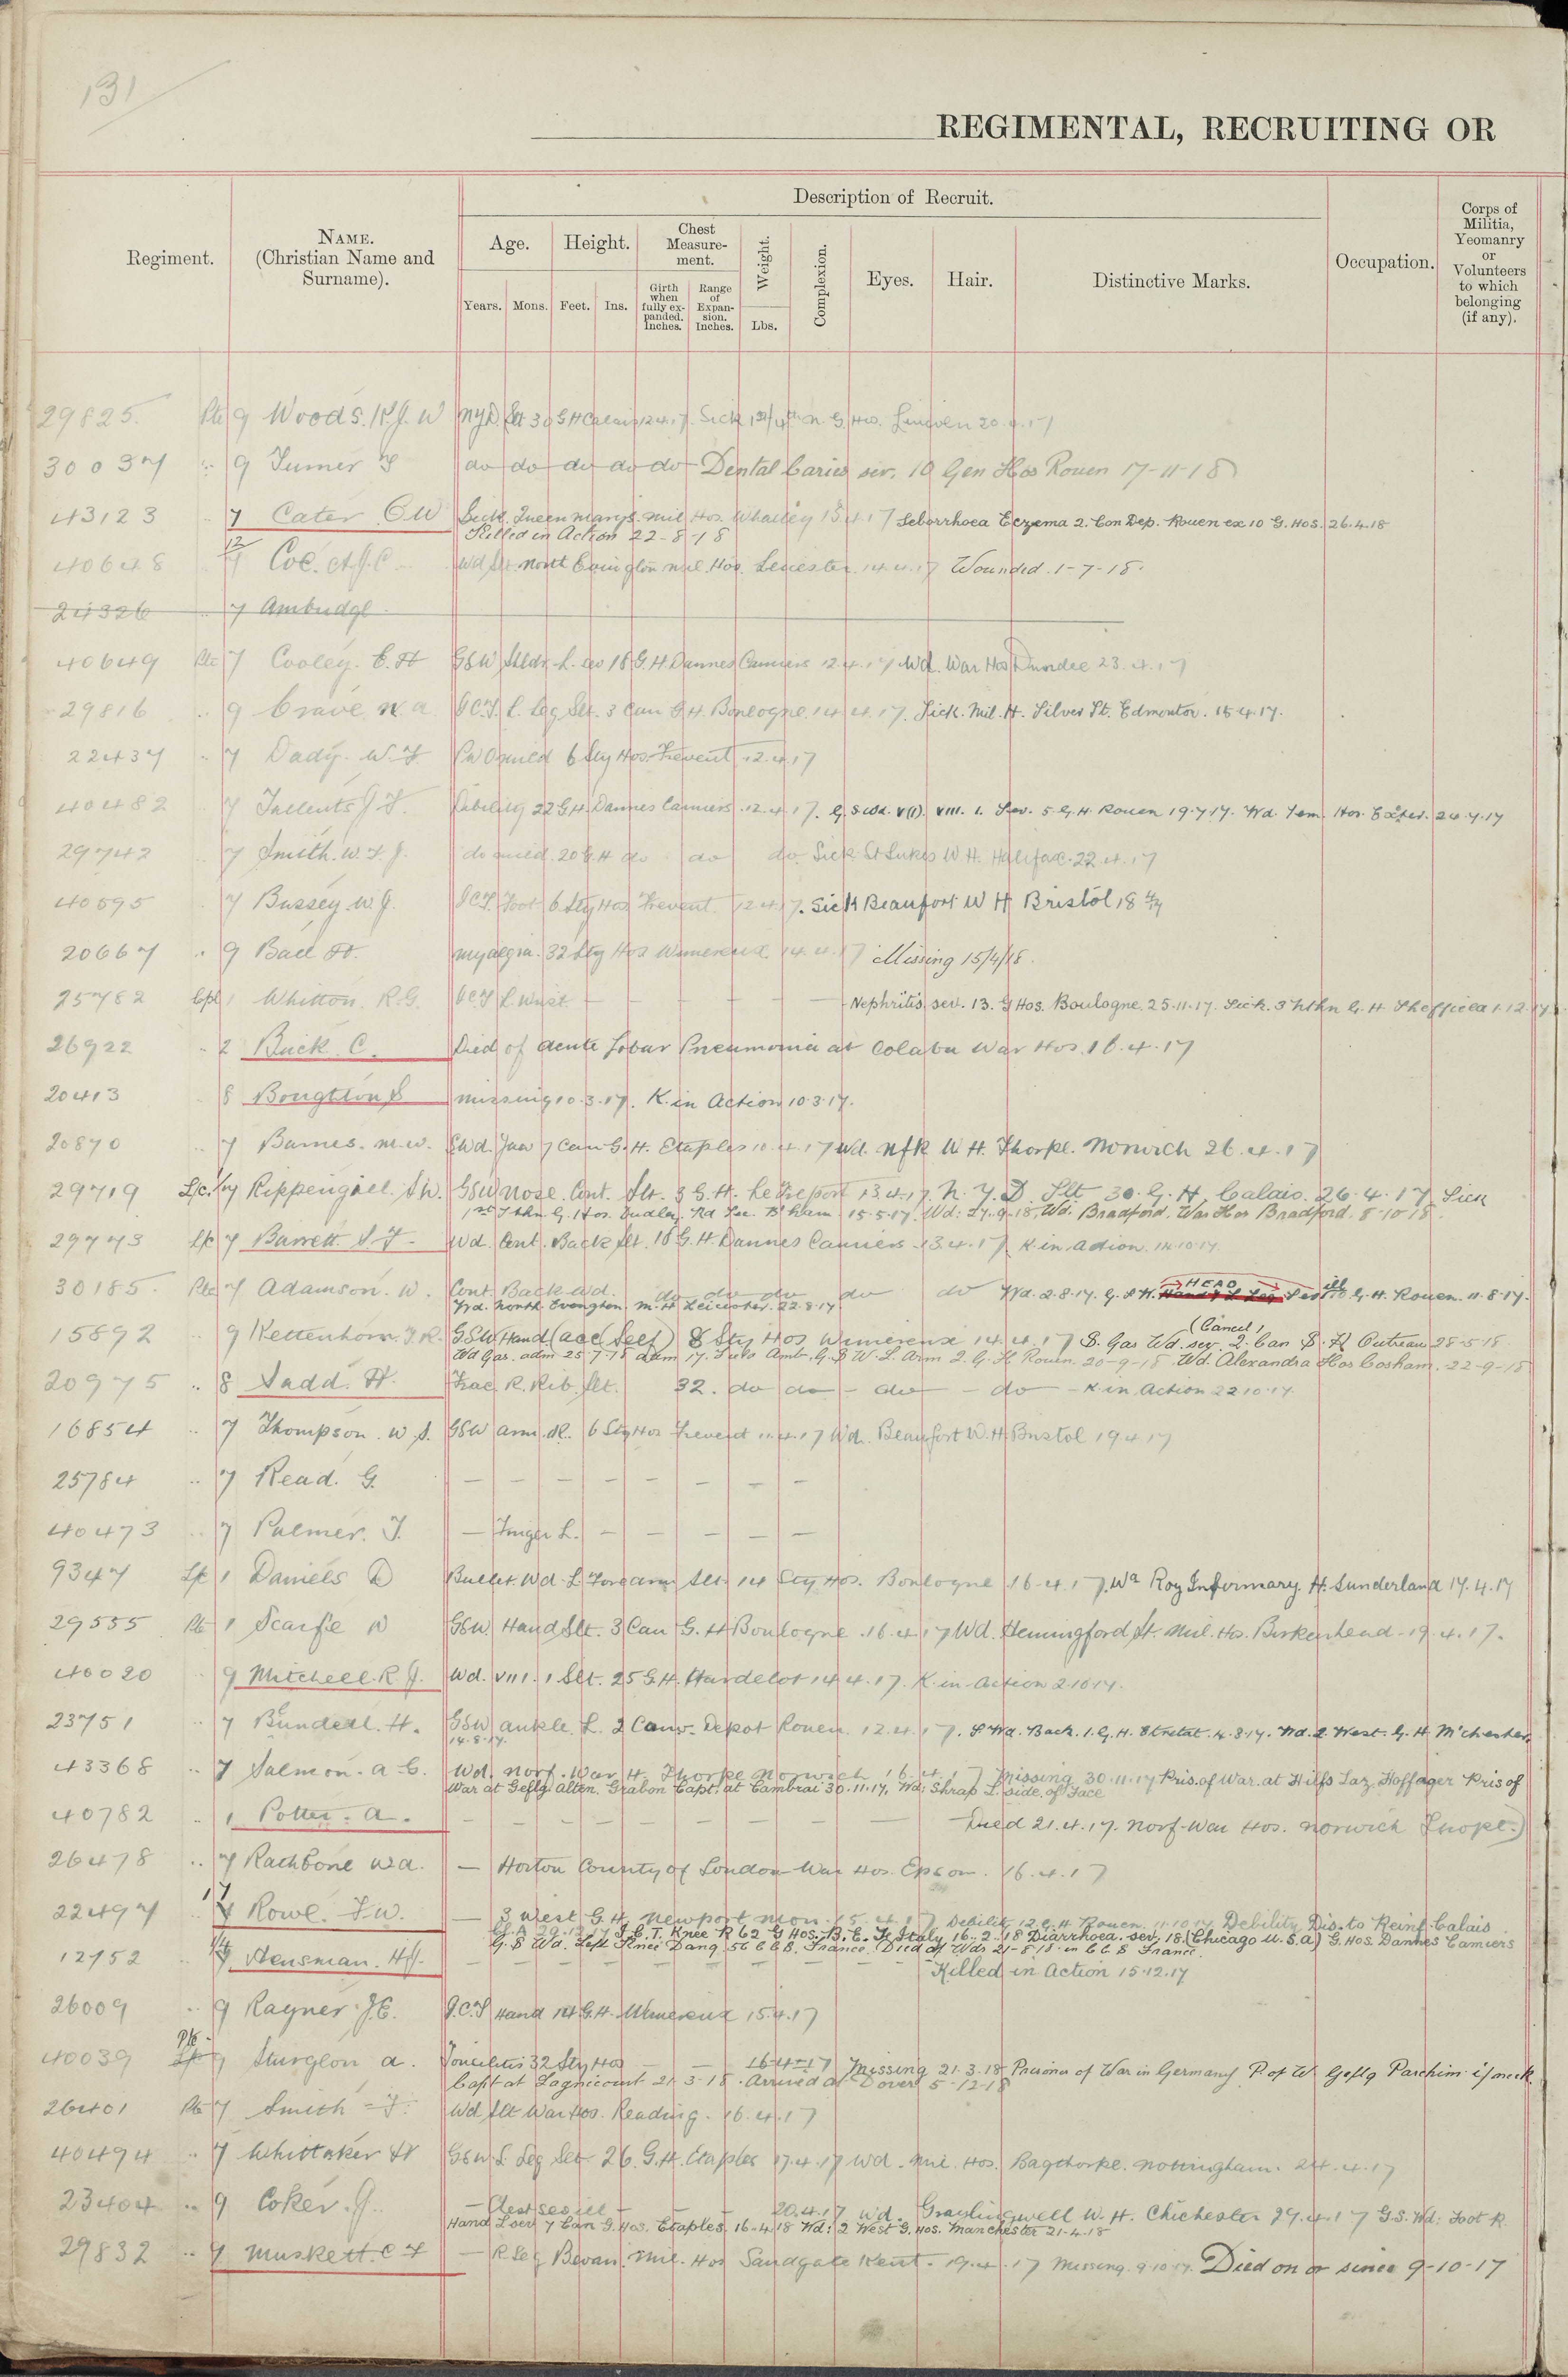 131
REGIMENTAL, RECRUITING OR
Regiment.
NAME.
(Christian Name and
Surname).
Description of Recruit.
Age.
Height.
Chest
Measure-
ment.
Weight.
Complexion.
Eyes.
Hair.
Distinctive Marks.
Occupation.
Corps of
Militia,
Yeomanry
or
Volunteers
to which
belonging
(if any).
Years.
Mons.
Feet.
Ins.
Girth
when
fully ex-
panded.
Inches.
Range
of
Expan-
sion.
Inches.
Lbs.
29825. Pte 9 Woods. W NYD. Slt 30 G H Calais 12.4.17. Sick 1st/4th N. G. Hos. Lincoln 20.4.17
30037 " 9 Turner do do do do do Dental Caries sev. 10 Gen Hos Rouen 17-11-18
43123 " 7 Cater C W Sick. Queen Mary's Mil Hos. Whalley 15.4.17 Seborrhoea Eczema 2. Con Dep. Rouen ex 10 G. Hos. 26.4.18
Killed in Action 22-8-18
40648 12 Coe. A.J.C. Wd Slt North Evington Mil. Hos. Leicester 14.4.17 Wounded. 1-7-18.
24326 " 7 Ambudge
40649 Pte 7 Cooley. E. H GSW Sldr. L. sev 18 G.H Dannes Camiers 12.4.17 Wd. War Hos Dundee 23.4.17
29816 " 9 Crave W. A ICT L. Leg Slt. 3 Can G H. Boulogne 14.4.17. Sick. Mil. H. Silver St. Edmonton. 15.4.17.
22437 " 7 Dady. W. F 6 Sty Hos. Frevent 12.4.17
40482 7 Tallents J. F. Debility 22 G.H. Dannes Camiers 12.4.17. G. S Wd. V(1). VIII. 1. Sev. 5 G. H. Rouen 19.7.17. Wd. Tem. Hos. Exeter. 24.7.17
29742 7 Smith. W. F. J. do mild. 20 G.H do do do Sick St Lukes W H. Halifax. 22.4.17
40595 7 Bussey. W. J. ICT. Foot 6 Sty Hos Frevent. 12.4.17. Sick Beaufort W H Bristol 18 4/17
20667 " 9 Ball H. Myalgia. 32 Sty Hos Wimereux 14.4.17 Missing 15/4/18.
25782 Cpl 1 Whitton. R.G. ICT L. Wrist - - - - - Nephritis sev. 13. G Hos. Boulogne. 25.11.17. Sick. 3 Nthn G. H. Sheffield 1.12.17
26922 " 2 Buck C. Died of Acute Lobar Pneumonia at Colaba War Hos. 16.4.17
20413 8 Boughton S Missing 10.3.17. K. in Action 10.3.17.
20870 " 7 Barnes. M. W. S Wd. Jaw 7 Can G. H. Etaples 10.4.17 Wd. Nfk W H. Thorpe. Norwich 26.4.17
29719 L/c. 1/7 Rippengall. S W. GSW Nose. Cont. Slt. 3 G. H. Le Treport 13.4.17. N. Y. D. Slt 30. G. H. Calais. 26.4.17 Sick
1st Sthn G. Hos. Dudley Rd Sec. B'ham 15.5.17. Wd: 27.9.18, Wd. Bradford. War Hos Bradford. 8-10-18.
29773 L/c 7 Barrett. S. F. Wd. Cont. Back Slt. 18 G. H Dannes Camiers 13.4.17 K. in Action. 14.10.17.
30185. Pte 7 Adamson. W. Cont. Back Wd. do do do do do Wd. 2.8.17. G. S W. HEAD Hand & L Leg Sev ill G. H. Rouen. 11.8.17.
Wd. North Evington. M. H Leicester. 22.8.17. (Cancel)
15892 " 9 Kettenhorn. J. R. GSW Hand (acc Self) 8 Sty Hos Wimereux 14.4.17 S. Gas Wd. sev. 2. Can S. H Outreau 28-5-18
Wd Gas. adm 25.7.18 Amb. G S W. L. Arm 2. G. H Rouen. 20-9-18 Wd. Alexandra Hos Cosham. 22-9-18
20975 " 8 Sadd. H. Frac. R. Rib. Slt. 32. do do - do - do - K in Action 22.10.17.
16854 " 7 Thompson. W. S. GSW Arm. R. 6 Sty Hos Frevent 11.4.17 Wd. Beaufort W. H. Bristol 19.4.17
25784 " 7 Read. G. - - - - - - -
40473 " 7 Palmer. J. - Finger L. - - - - -
9347 L/c 1 Daniels D Bullet Wd L Forearm Slt 14 Sty Hos. Boulogne 16-4-17. Wd Roy Infirmary. H. Sunderland 17.4.17
29555 Pte 1 Scarfe W GSW. Hand Slt. 3 Can G. H Boulogne. 16.4.17 Wd. Hemingford St. Mil. Hos. Birkenhead. 19.4.17.
40020 " 9 Mitchell. R J. Wd. VIII. 1 Slt. 25 G. H. Hardelot 14.4.17. K. in Action 2.10.17.
23751 " 7 Bundell. H. GSW Ankle. L. 2 Conv. Depot Rouen. 12.4.17. S Wd. Back. 1. G. H. Etretat. 4.8.17. Wd. 2. West. G. H M'chester.
14.8.17.
43368 " 7 Salmon. A. C. Wd. Norf. War H. Thorpe Norwich 16.4.17 Missing 30.11.17 Pris. of War. at Hilfs Laz. Hoffager Pris of
War at Geflg. Alten. Grabon Capt. at Cambrai 30.11.17. Wd: Shrap L. side of Face
40782 " 1 Potter. A. - - - - - - - - Died 21.4.17. Norf. War Hos. Norwich Thorpe.)
26478 " 7 Rathbone W. A. - Horton County of London War Hos. Epsom. 16.4.17
22497 " 1/7 Rowe. F. W. - 3 West G. H. Newport Mon. 15.4.17 Debility 12. G. H Rouen. 11.10.17 Debility Dis. to Reinf. Calais
29.12.17 I. C. T. Knee R 62 G Hos. B. E. F. Italy 16.2.18 Diarrhoea. sev. 18. (Chicago U.S.A) G. Hos. Dannes Camiers
G. S Wd. Left Knee Dang. 56 C C S. France. Died of Wds 21-8-18 in C C S France.
12952 " Hensman. H J. - - - - - - - - Killed in Action 15.12.17
26009 " 9 Rayner J. E. I.C.T Hand 14 G. H. Wimereux 15.4.17
40039 Pte 9 Sturgeon A. Tonsilitis 32 Sty Hos - - 16-4-17 Missing 21.3.18 Prisoner of War in Germany P. of W Geflg Parchim i/meck.
Capt at Lagnicourt 21-3-18. Arrived at Dover 5-12-18
26401 Pte 7 Smith F. Wd Slt War Hos. Reading. 16.4.17
40494 " 7 Whittaker H GSW. L. Leg Slt 26. G. H. Etaples 17.4.17 Wd. Mil. Hos. Bagthorpe. Nottingham. 24.4.17
23404 " 9 Coker. J. - Chest sev ill - - - 20.4.17 Wd. Graylingwell W. H. Chichester 29.4.17 G. S. Wd: Foot R.
Hand L sev 7 Can G. Hos. Etaples. 16-4-18 Wd: 2 West G. Hos. Manchester 21-4-18
29832 " 7 Muskett. C F - R Leg Bevan. Mil. Hos Sandgate Kent. 19.4.17 Missing. 9.10.17. Died on or since 9-10-17